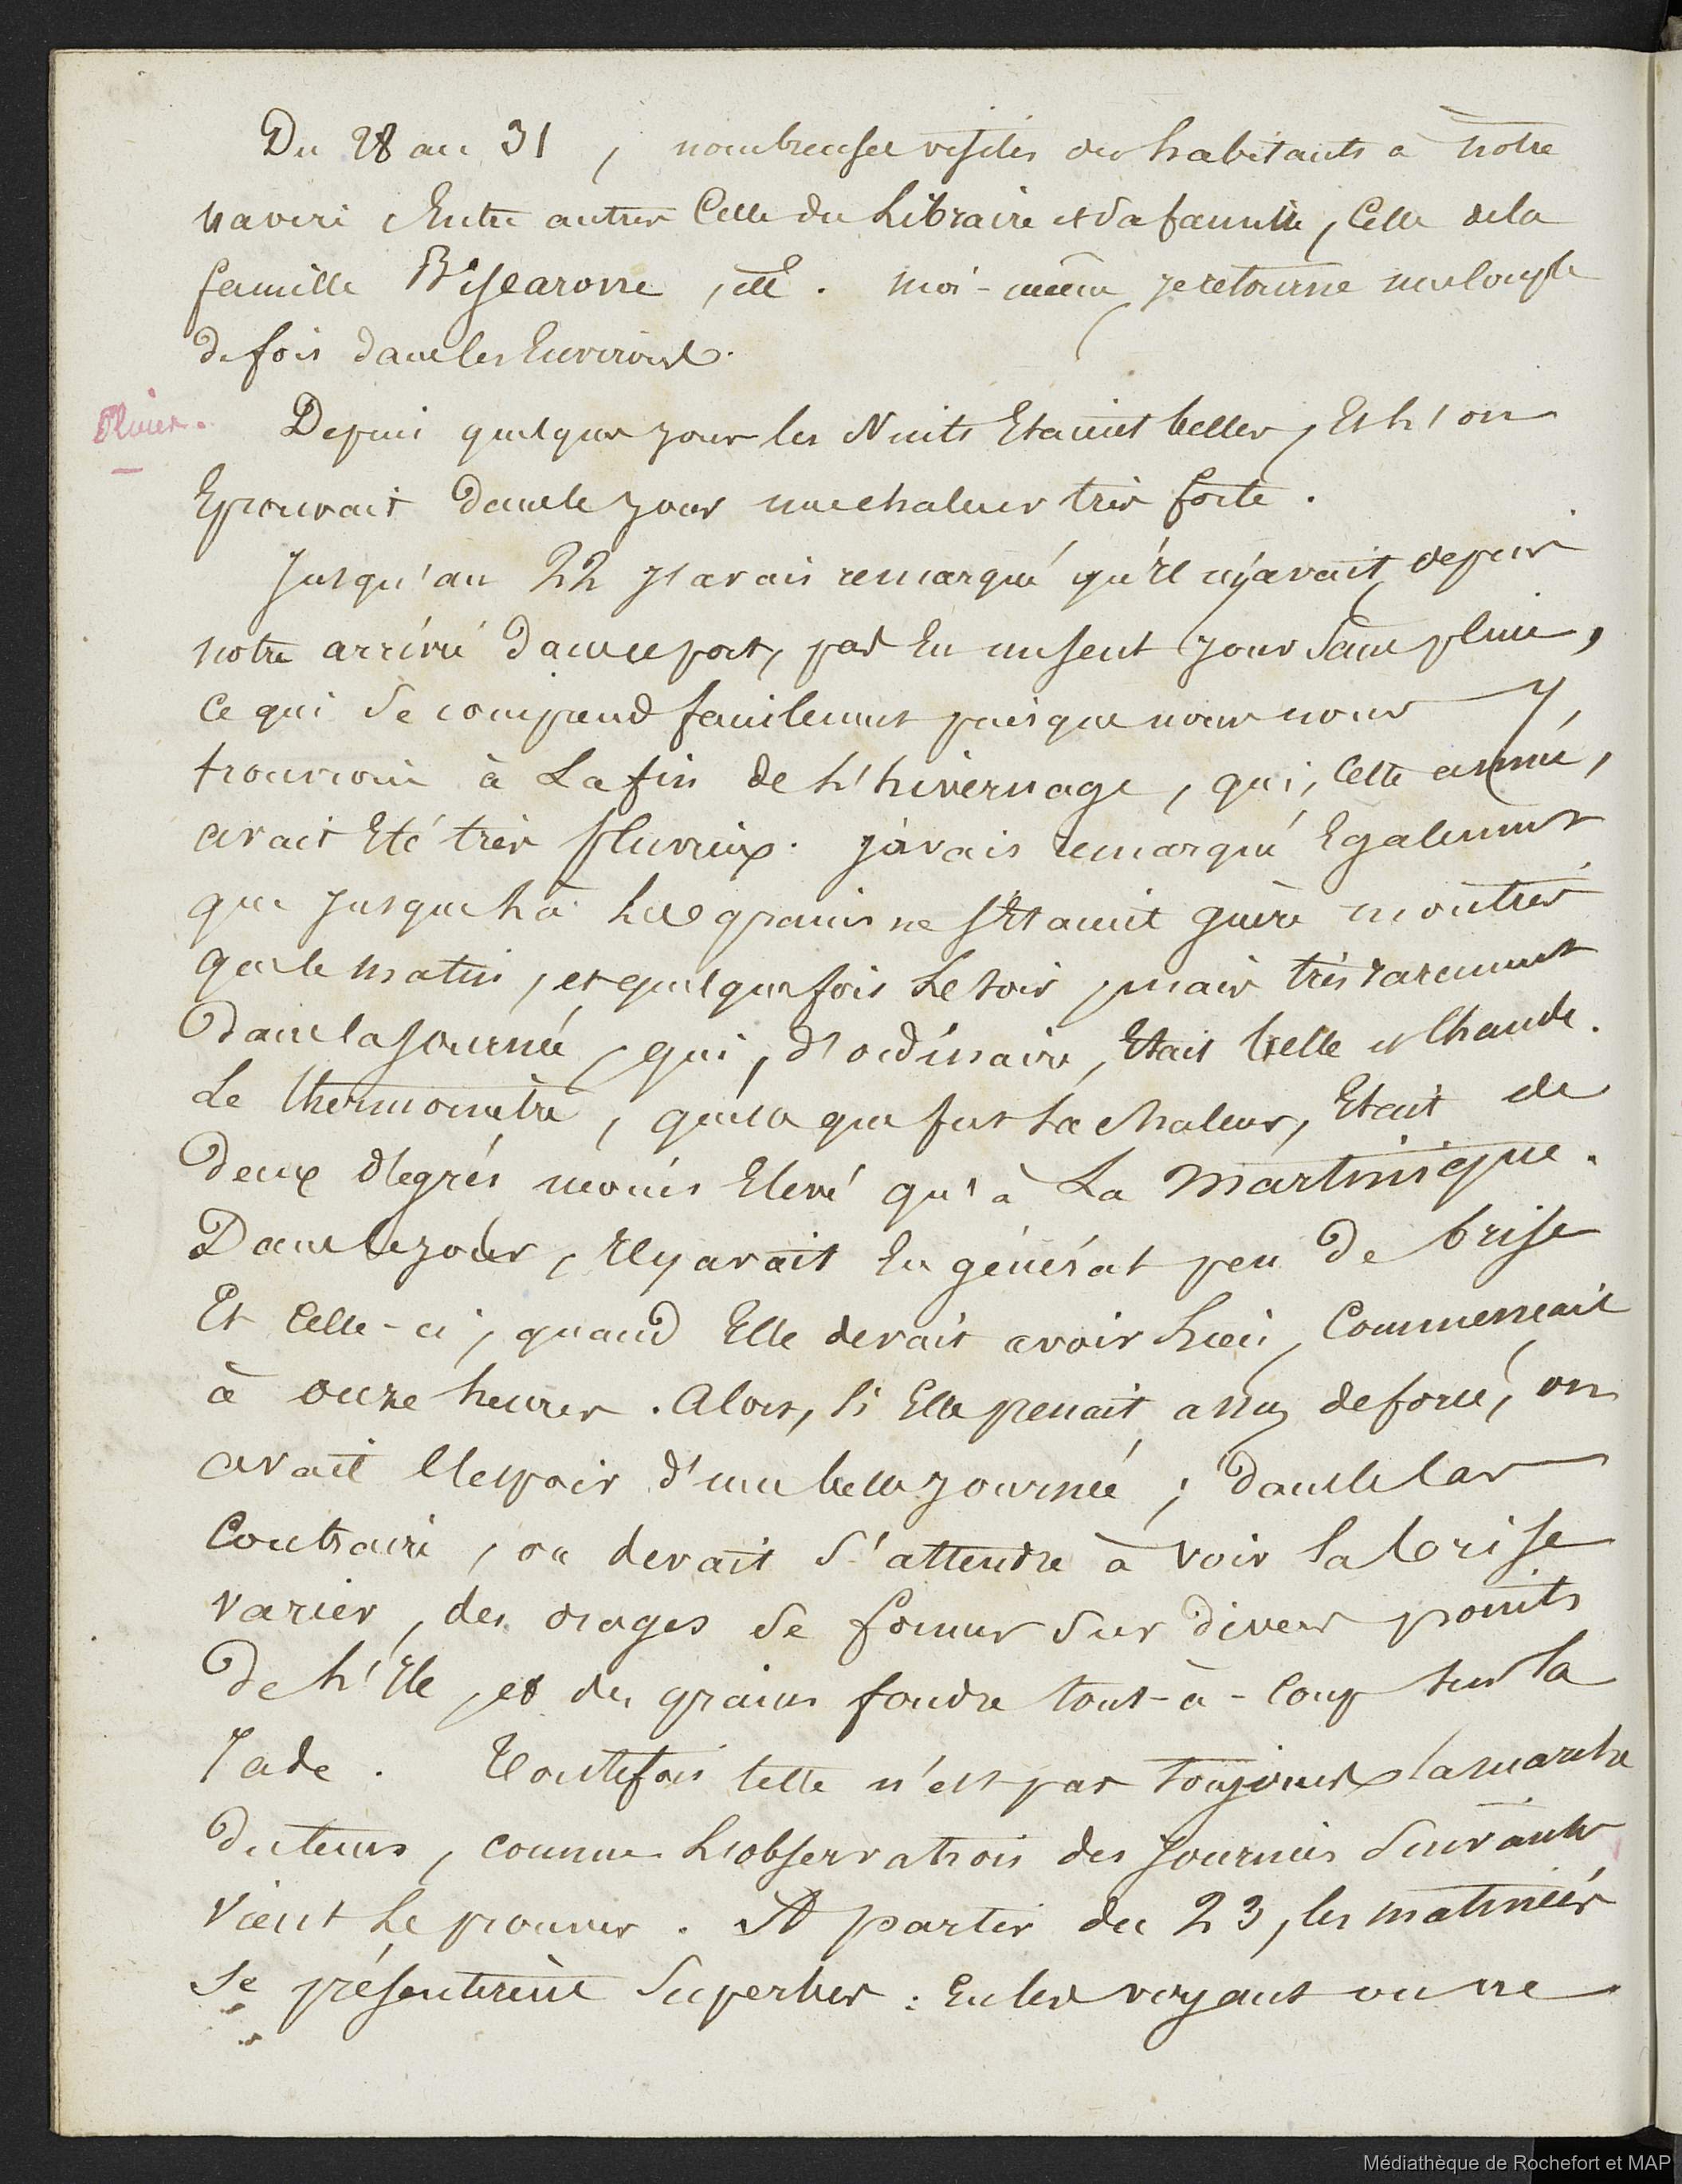 Du 28 au 31, nombreuses visites des habitants à notre
navire Entre autres Celle du Libraire et sa famille, Celle de la
famille Biscarorre, etc. moi-même, je retourne une couple
de fois dans les Environs.
Pluies.
Depuis quelques jours les Nuits Etaient belles, Et l'on
Eprouvait dans le jour une chaleur très forte.
Jusqu'au 22 j'avais remarqué qu'il n'y avait, depuis
notre arrivée dans ce port, pas Eu un seul jour sans pluie,
ce qui se comprend facilement puisque nous nous y
trouvions à La fin de l'hivernage, qui, Cette année,
avait Eté très pluvieux. j'avais remarqué Egalement
que jusque là Les grains ne s'Etaient guère montrés
que le matin, et quelques fois Le soir, mais très rarement
dans la journée, qui, d'ordinaire, Etait belle et Chaude.
Le thermomètre, quelle que fut La chaleur, Etait de
deux degrés moins Elevé qu'à La Martinique.
Dans le jour, Il y avait En général peu de brise
Et Celle-ci, quand Elle devait avoir Lieu, Commençait
à onze heures. Alors, si Elle prenait assez de force, on
avait l'espoir d'une belle journée; dans le Cas
Contraire, on devait s'attendre à voir la brise
varier, des orages se former sur divers points
de L'Ile, et des grains fondre tout-à-Coup sur la
rade. Toutefois telle n'est pas toujours la marche
du tems, comme L'observation des journées suivantes
vient Le prouver. A partir du 23, les matinées
se présentèrent Superbes : En les voyant on ne
Médiathèque de Rochefort et MAP